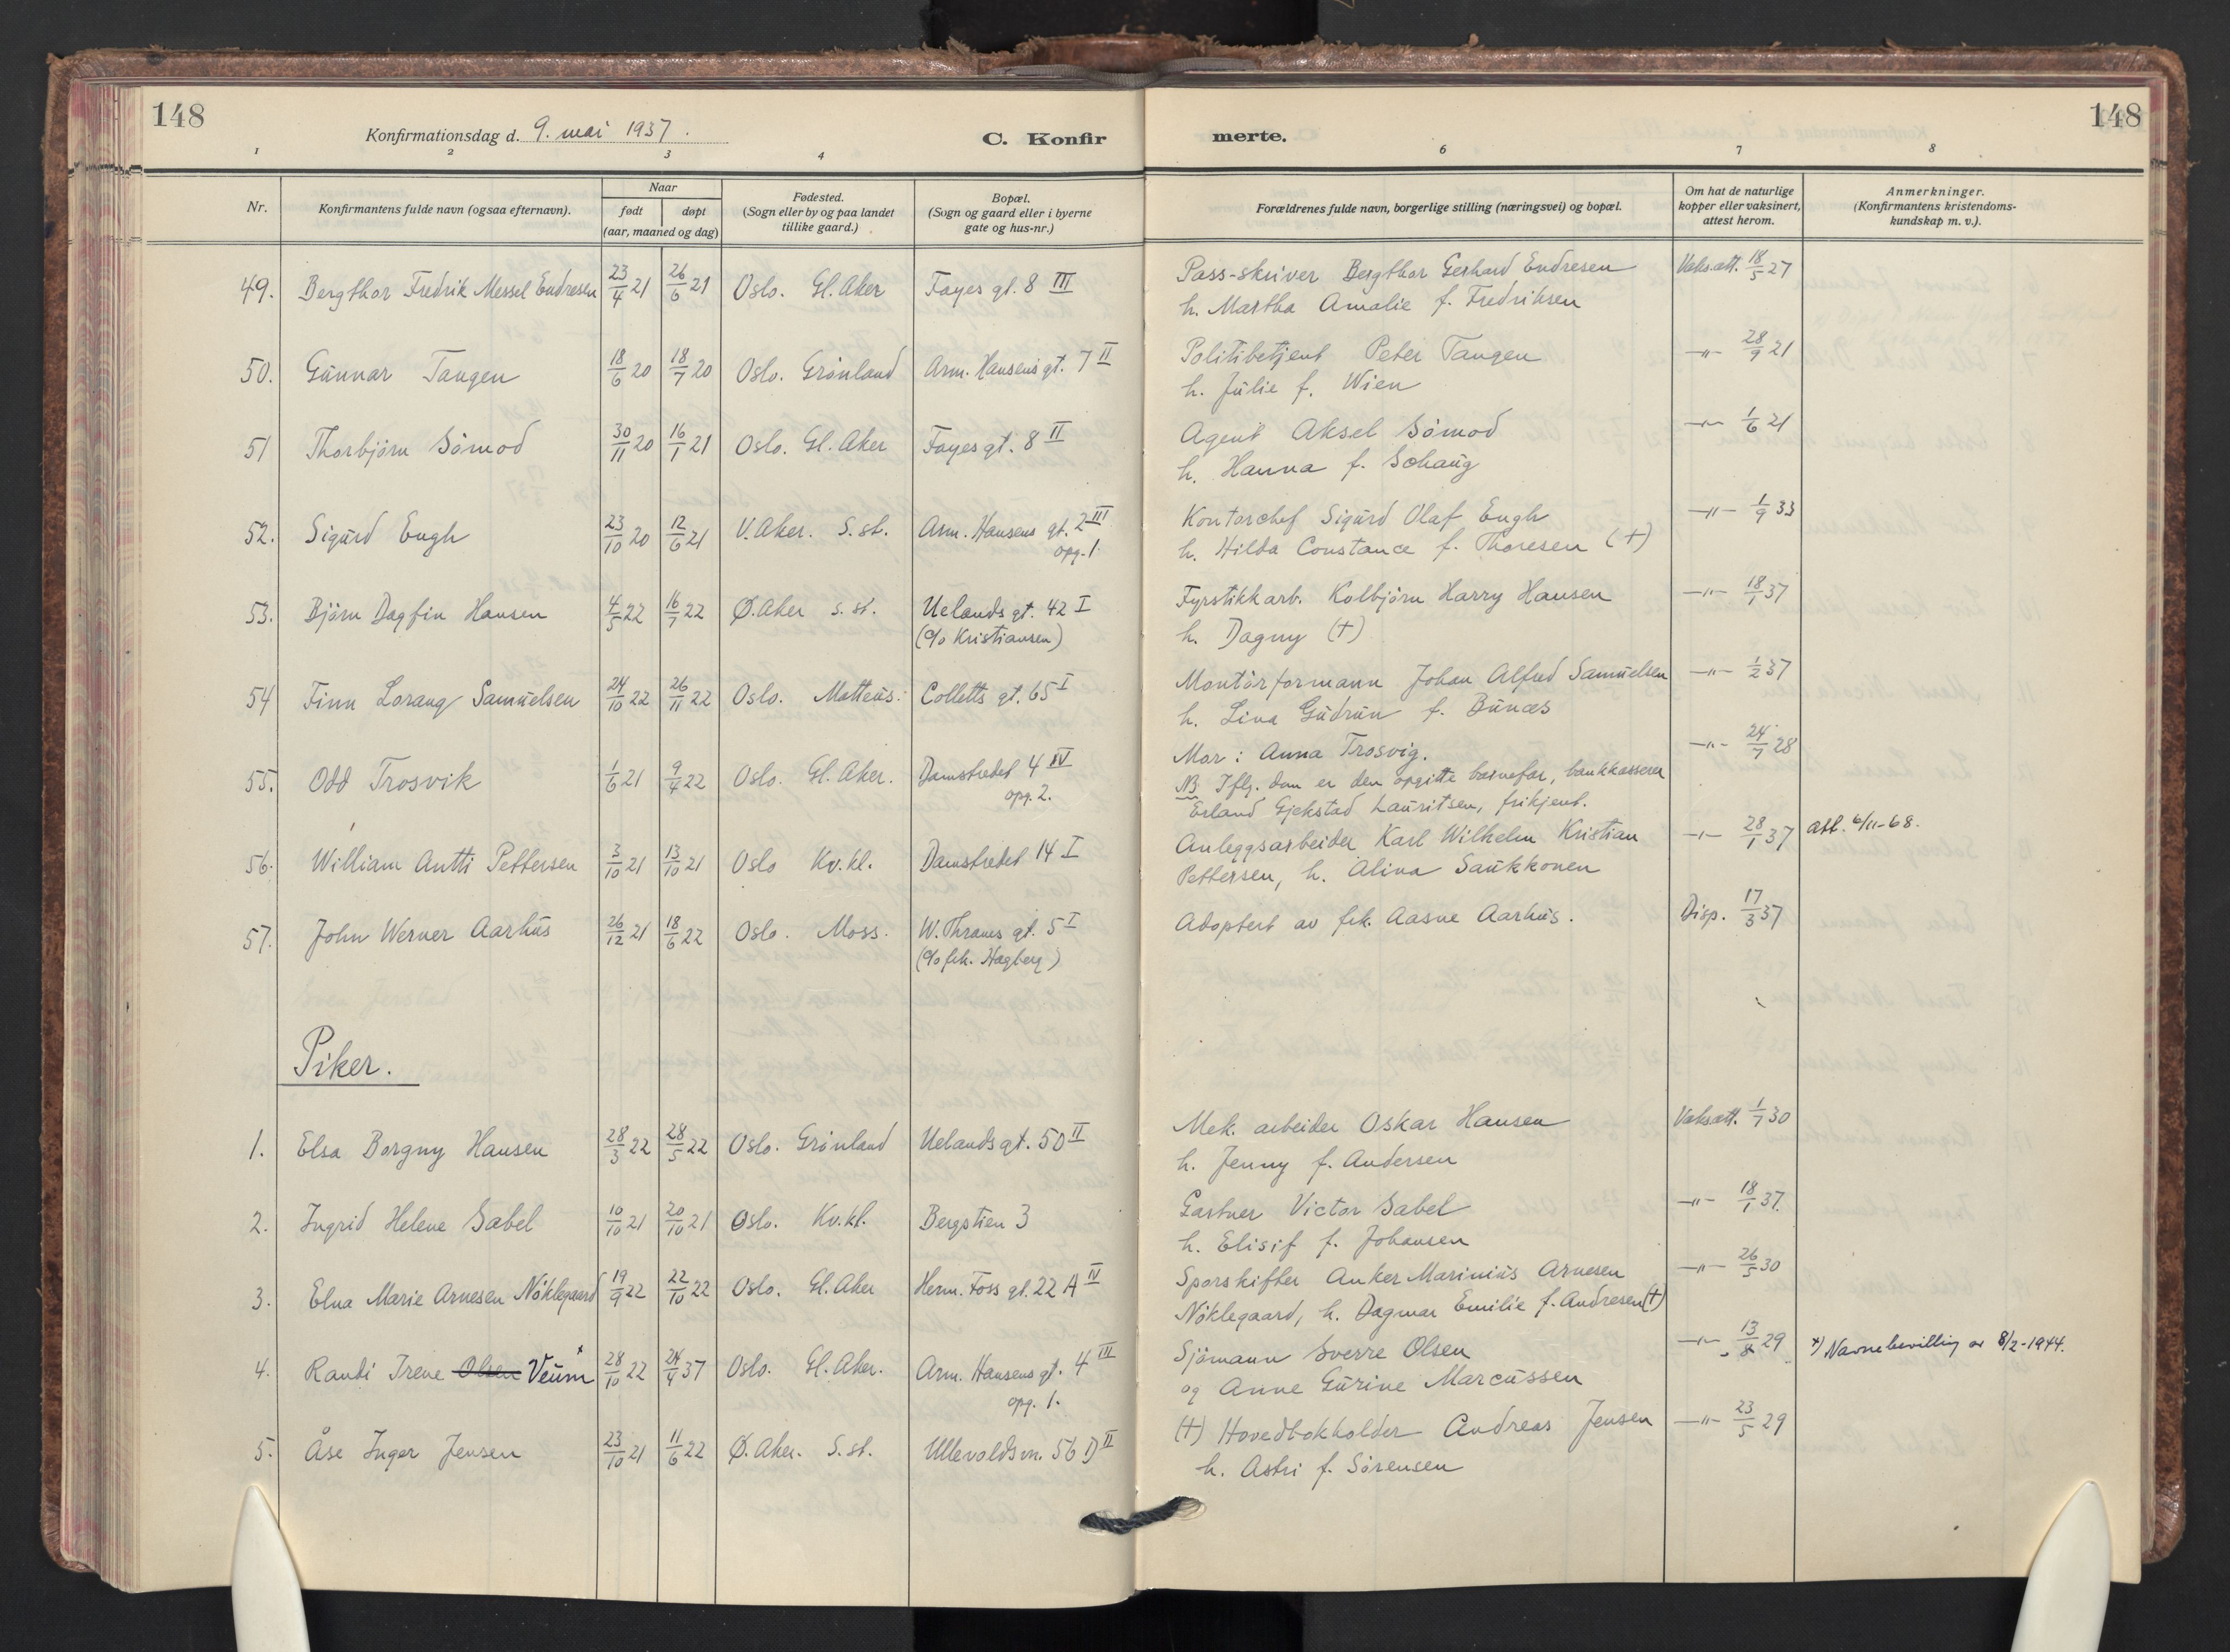 148
Konfirmationsdag d. 9. mai 1937.
C. Konfir
merte.
148
1 2 3 4 6 7 8
Nr.
Konfirmantens fulde navn (ogsaa efternavn).
Naar
født døpt
(aar, maaned og dag)
Fødested.
(Sogn eller by og paa landet
tillike gaard.)
Bopæl.
(Sogn og gaard eller i byerne
gate og hus-nr.)
Forældrenes fulde navn, borgerlige stilling (næringsvei) og bopæl.
Om hat de naturlige
kopper eller vaksinert,
attest herom.
Anmerkninger.
(Konfirmantens kristendoms-
kundskap m. v.).
49. Bergthor Fredrik Messel Endresen 23/4 21 26/6 21 Oslo. Gl. Aker Fayes gt. 8 III Pass-skriver Bergthor Gerhard Endresen Vaks.att. 18/5 27
h. Martha Amalie f. Fredriksen
50. Gunnar Tangen 18/6 20 18/7 20 Oslo. Grønland Arm. Hansens gt. 7 II Politibetjent Peter Tangen -"- 28/9 21
h. Julie f. Wien
51 Thorbjørn Sømod 30/11 20 16/1 21 Oslo. Gl. Aker Fayes gt. 8 II Agent Aksel Sømod -"- 1/6 21
h. Hanna f. Schaug
52. Sigurd Engh 23/10 20 12/6 21 V. Aker. S. st. Arm. Hansens gt. 2 III Kontorchef Sigurd Olaf Engh -"- 1/9 33
opg. 1. h. Hilda Constance f. Thoresen (+)
53. Bjørn Dagfin Hansen 4/5 22 16/7 22 Ø. Aker s. st. Uelands gt. 42 I Fyrstikkarb. Kolbjørn Harry Hansen -"- 18/1 37
(c/o Kristiansen) h. Dagny (+)
54 Finn Lorang Samuelsen 24/10 22 26/11 22 Oslo. Matteus: Colletts gt. 65 I Montørformann Johan Alfred Samuelsen -"- 1/2 37
h. Lina Gudrun f. Bunæs
55. Odd Trosvik 1/6 21 9/4 22 Oslo. Gl. Aker. Damstredet 4 IV Mor: Anna Trosvig. -"- 24/7 28
opg. 2. NB Iflg. dom er den opgitte barnefar, bankkasserer
Erland Gjekstad Lauritsen, frikjent.
56. William Antti Pettersen 3/10 21 13/10 21 Oslo Kv. kl. Damstredet 14 I Anleggsarbeider Karl Wilhelm Kristian -"- 28/1 37 att. 6/11-68.
Pettersen, h. Alina Saukkonen
57. John Werner Aarhus 26/12 21 18/6 22 Oslo. Moss. W. Thranes gt. 5 I Adoptert av frk. Aasne Aarhus. Disp. 17/3 37
(c/o frk. Hagberg)
Piker.
1. Elsa Borgny Hansen 28/3 22 28/5 22 Oslo. Grønland Uelands gt. 50 II Mek. arbeider Oskar Hansen Vaks.att. 1/7 30
h. Jenny f. Andersen
2. Ingrid Helene Sabel 10/10 21 20/10 21 Oslo. Kv. kl. Bergstien 3 Gartner Victor Sabel -"- 18/1 37.
h. Elisif f. Johansen
3. Elna Marie Arnesen Nøklegaard 19/9 22 22/10 22 Oslo. Gl. Aker Herm. Foss gt. 22 A IV Sporskifter Anker Marinius Arnesen -"- 26/5 30
Nøklegaard, h. Dagmar Emilie f. Andresen (+)
4. Randi Irene Olsen Veum x 28/10 22 24/4 37 Oslo. Gl. Aker. Arm. Hansens gt. 4 III Sjømann Sverre Olsen -"- 13/8 29 x) Navnebevilling av 8/2-1944.
opg. 1. og Anne Gurine Marcussen
5. Åse Inger Jensen 23/10 21 11/6 22 Ø. Aker. S. st. Ullevoldsvn. 56 D II (+) Hovedbokholder Andreas Jensen -"- 23/5 29
h. Astri f. Sørensen